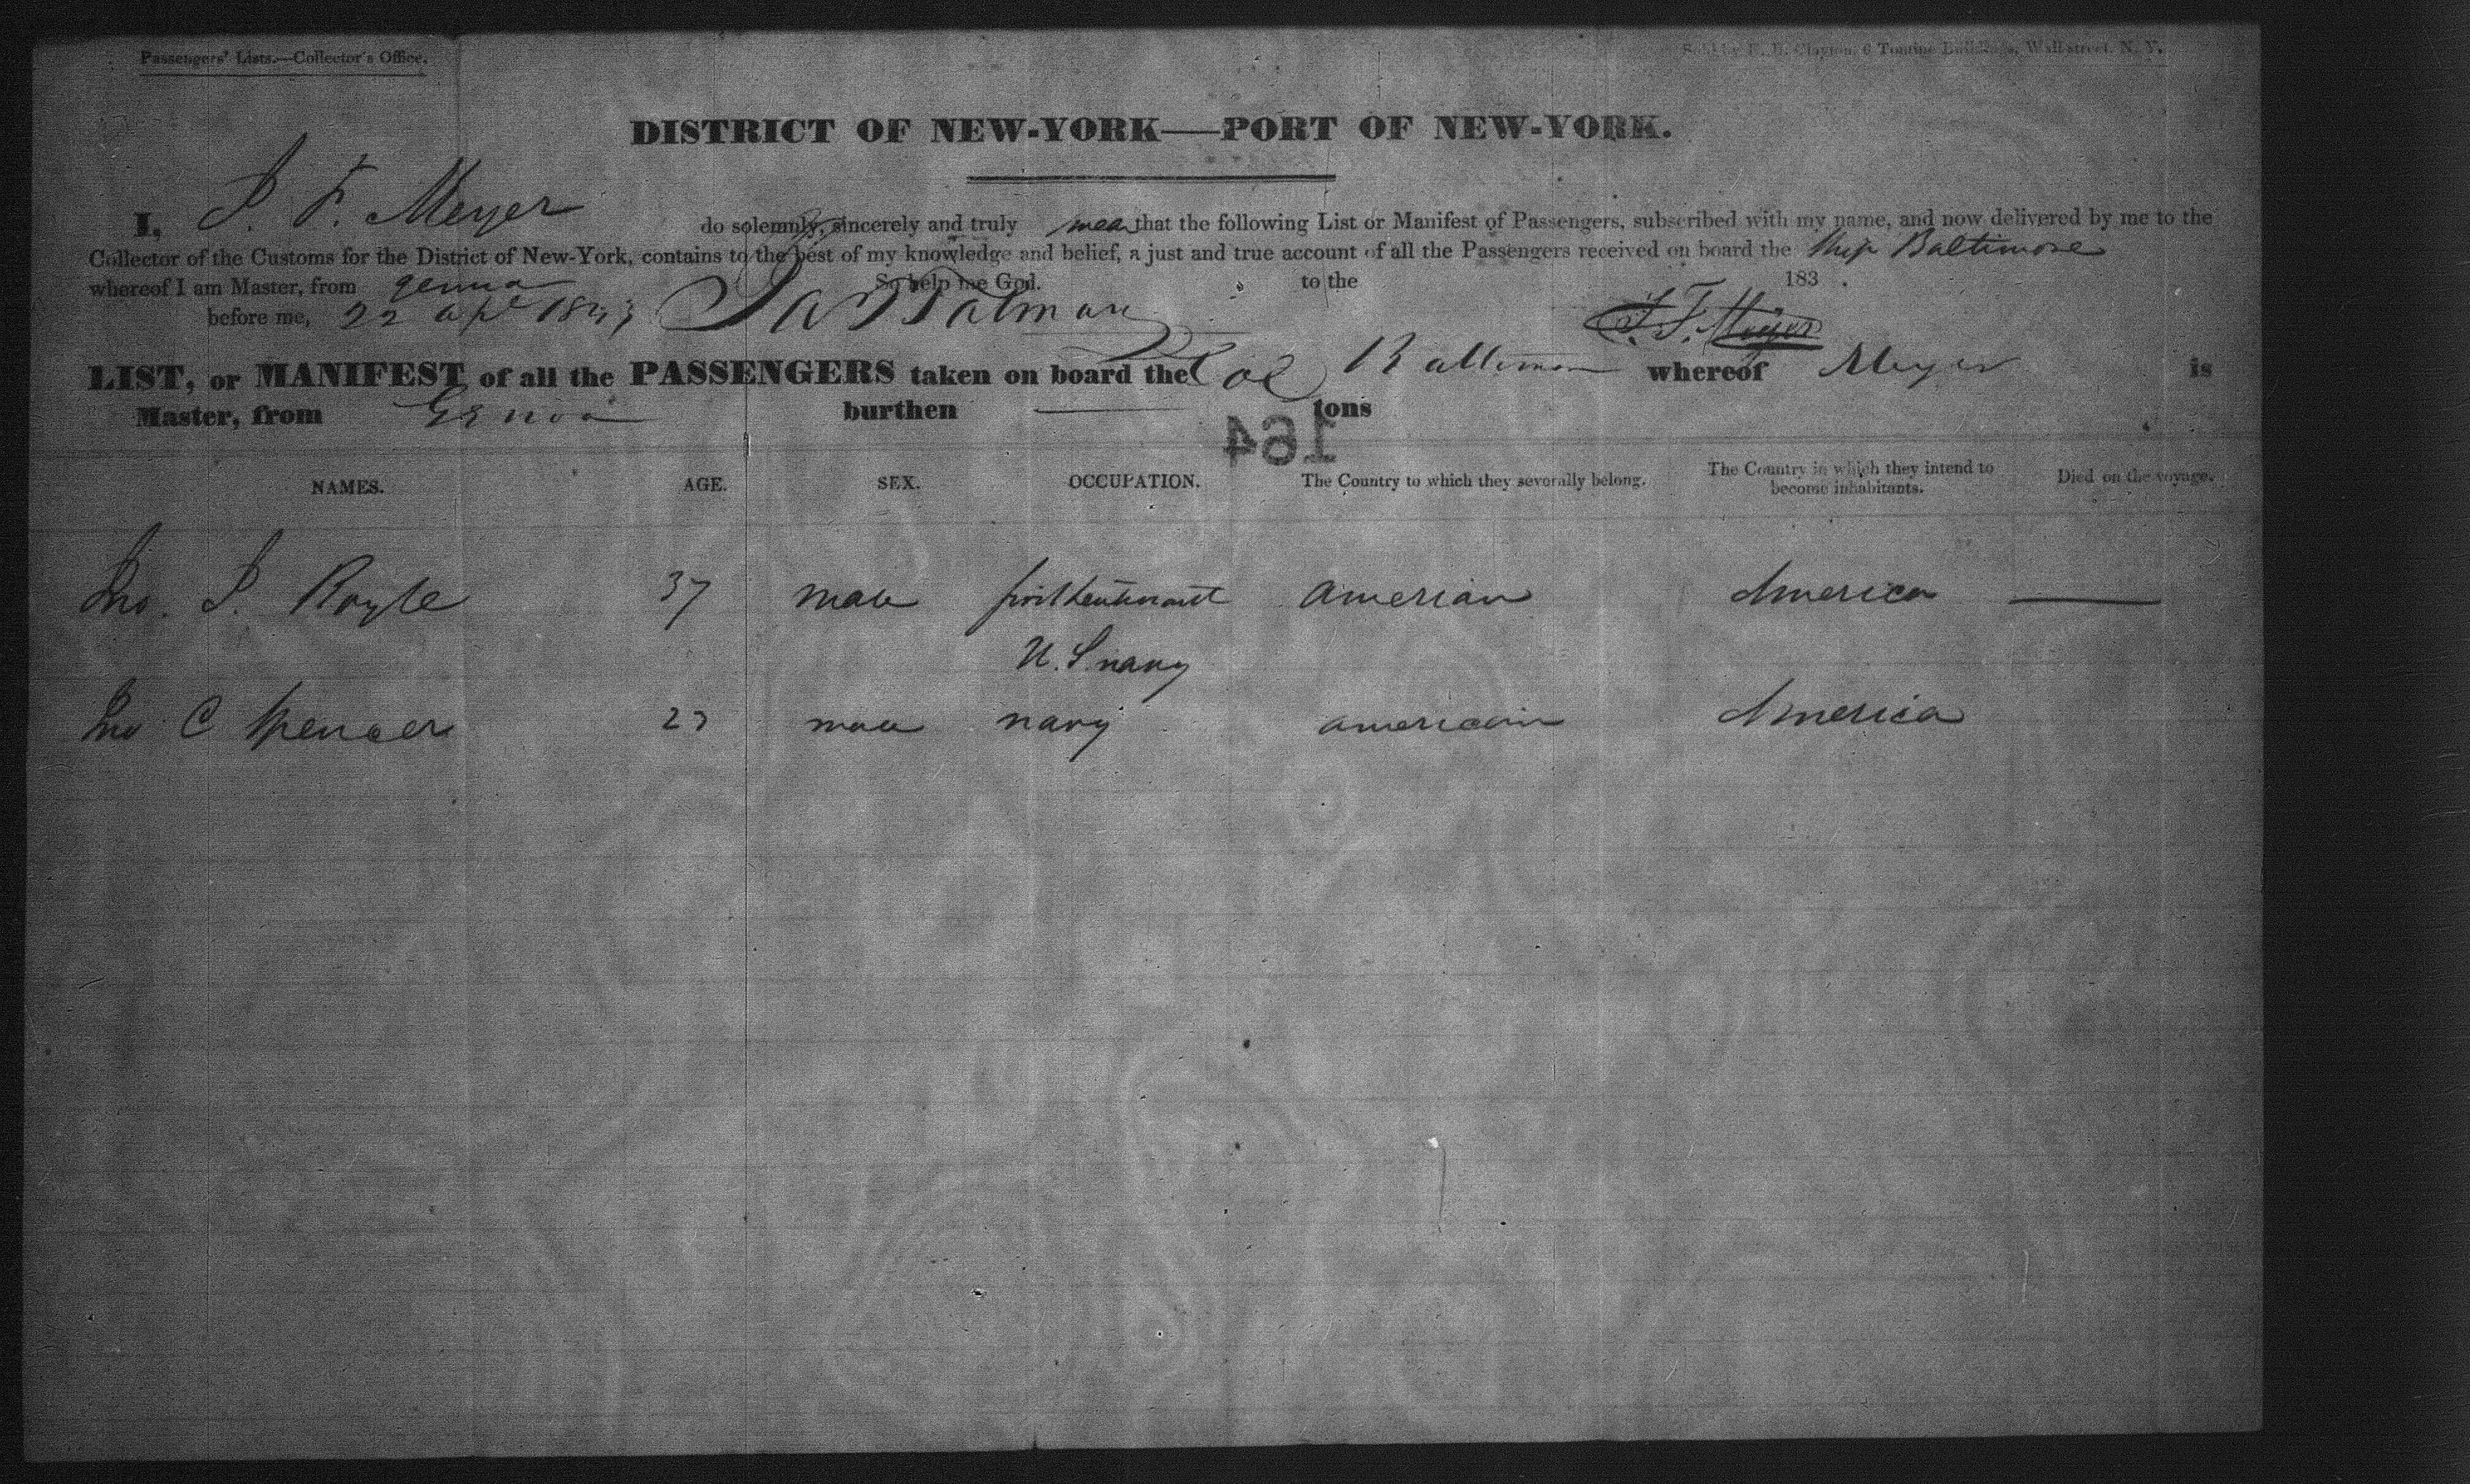 Passengers' Lists.—Collector's Office.
Sold by E. B. Clayton, 6 Tontine Buildings, Wall-street, N. Y.
DISTRICT OF NEW-YORK—PORT OF NEW-YORK.
I, J. F. Meyer do solemnly, sincerely and truly that the following List or Manifest of Passengers, subscribed with my name, and now delivered by me to the
Collector of the Customs for the District of New-York, contains to the best of my knowledge and belief, a just and true account of all the Passengers received on board the Ship Baltimore
whereof I am Master, from genua So help me God. to the 183 .
before me, 22 apl 1843 J. F. Meyer
LIST, or MANIFEST of all the PASSENGERS taken on board the whereof Meyer is
Master, from Genoa burthen — tons
164
NAMES. AGE. SEX. OCCUPATION. The Country to which they severally belong. The Country in which they intend to become inhabitants. Died on the voyage.
Jno. J. Royle 37 male first Leutenant amerian America —
U. S navy
Jno C Spencer 23 male navy american America